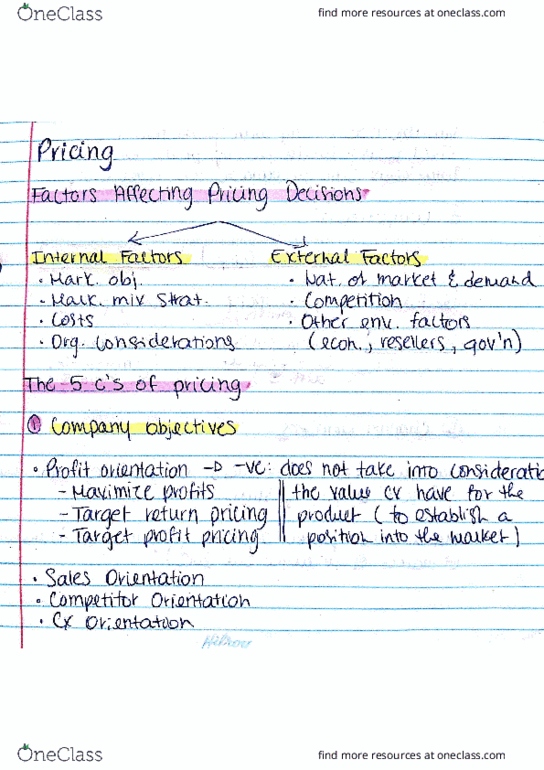 OneClass
find more resources at oneclass.com
Pricing
Factors Affecting Pricing Decisions
Internal Factors
External Factors
· Mark. obj.
· Nat. of market & demand
· Mark. mix strat.
· Competition
· Costs
· Other env. factors
· Org. considerations
(econ., resellers, gov'n)
The 5 c's of pricing
① Company objectives
· Profit orientation → -ve: does not take into consideratio
- Maximize profits
the value cx have for the
- Target return pricing
product (to establish a
- Target profit pricing
position into the market)
· Sales Orientation
· Competitor Orientation
· Cx Orientation
OneClass
find more resources at oneclass.com